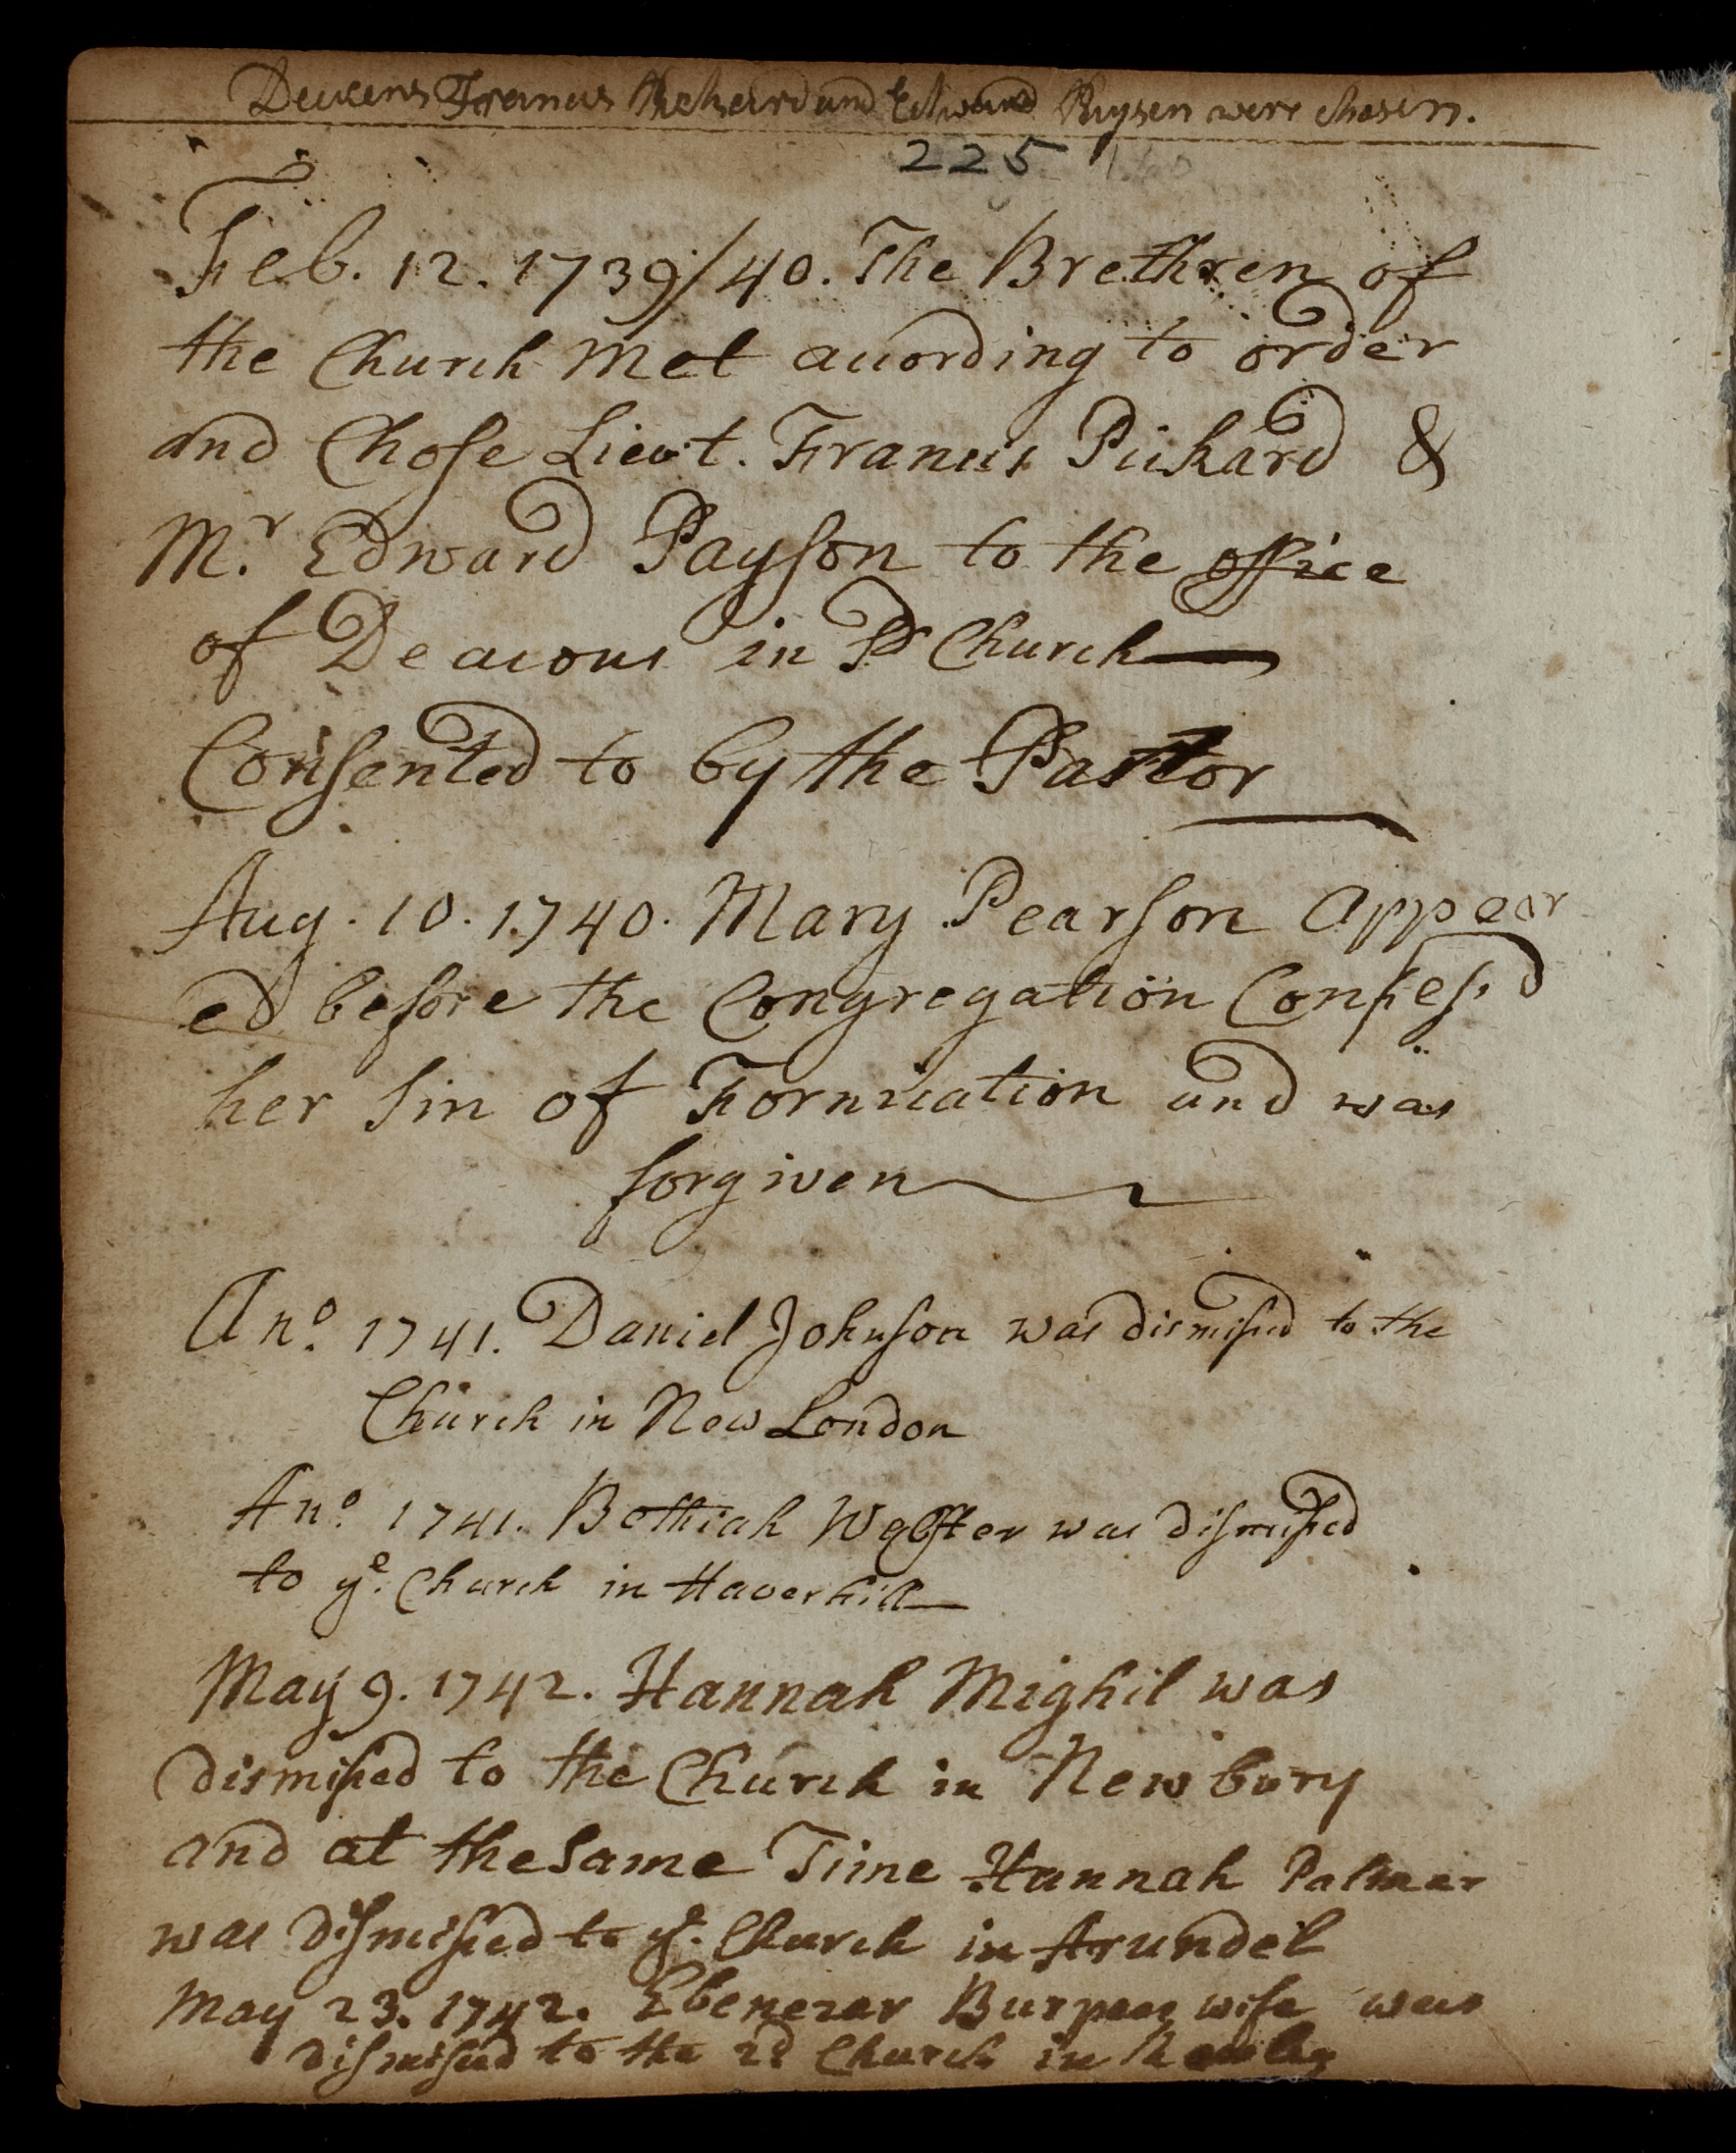 Deacons Francis Pickard and Edward Paysen were chosen.
225
Feb. 12. 1739/40. The Brethren of
the Church Met according to order
and Chose Lieut. Francis Pickard &
Mr. Edward Payson to the office
of Deacons in sd Church
Consented to by the Pastor
Aug. 10. 1740. Mary Pearson Appear
ed before the Congregation Confess'd
her Sin of Fornication and was
forgiven
Ano. 1741. Daniel Johnson was dismissed to the
Church in New London
Ano. 1741. Bethiah Webster was Dismissed
to ye. Church in Haverhill
May 9. 1742. Hannah Mighil was
Dismissed to the Church in Newbury
and at the same Time Hannah Palmer
was Dismissed to ye. Church in Arundel
May 23. 1742. Ebenezer Burpees wife was
Dismissed to the 2d Church in Rowley